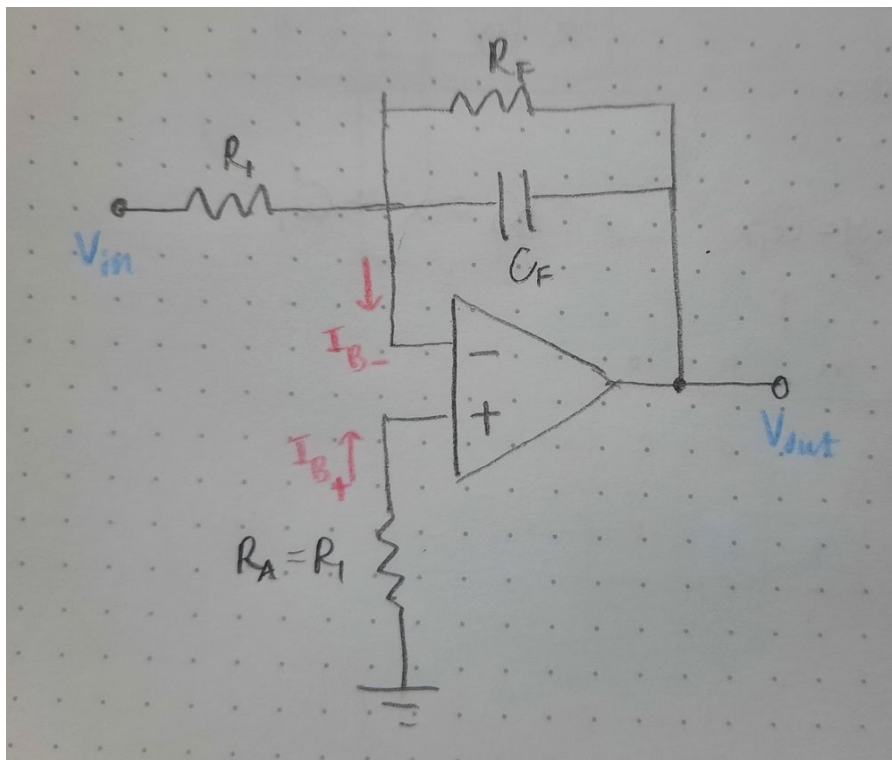 R_F
R_1
V_in
C_F
I_B-
−
+
I_B+
V_out
R_A = R_1